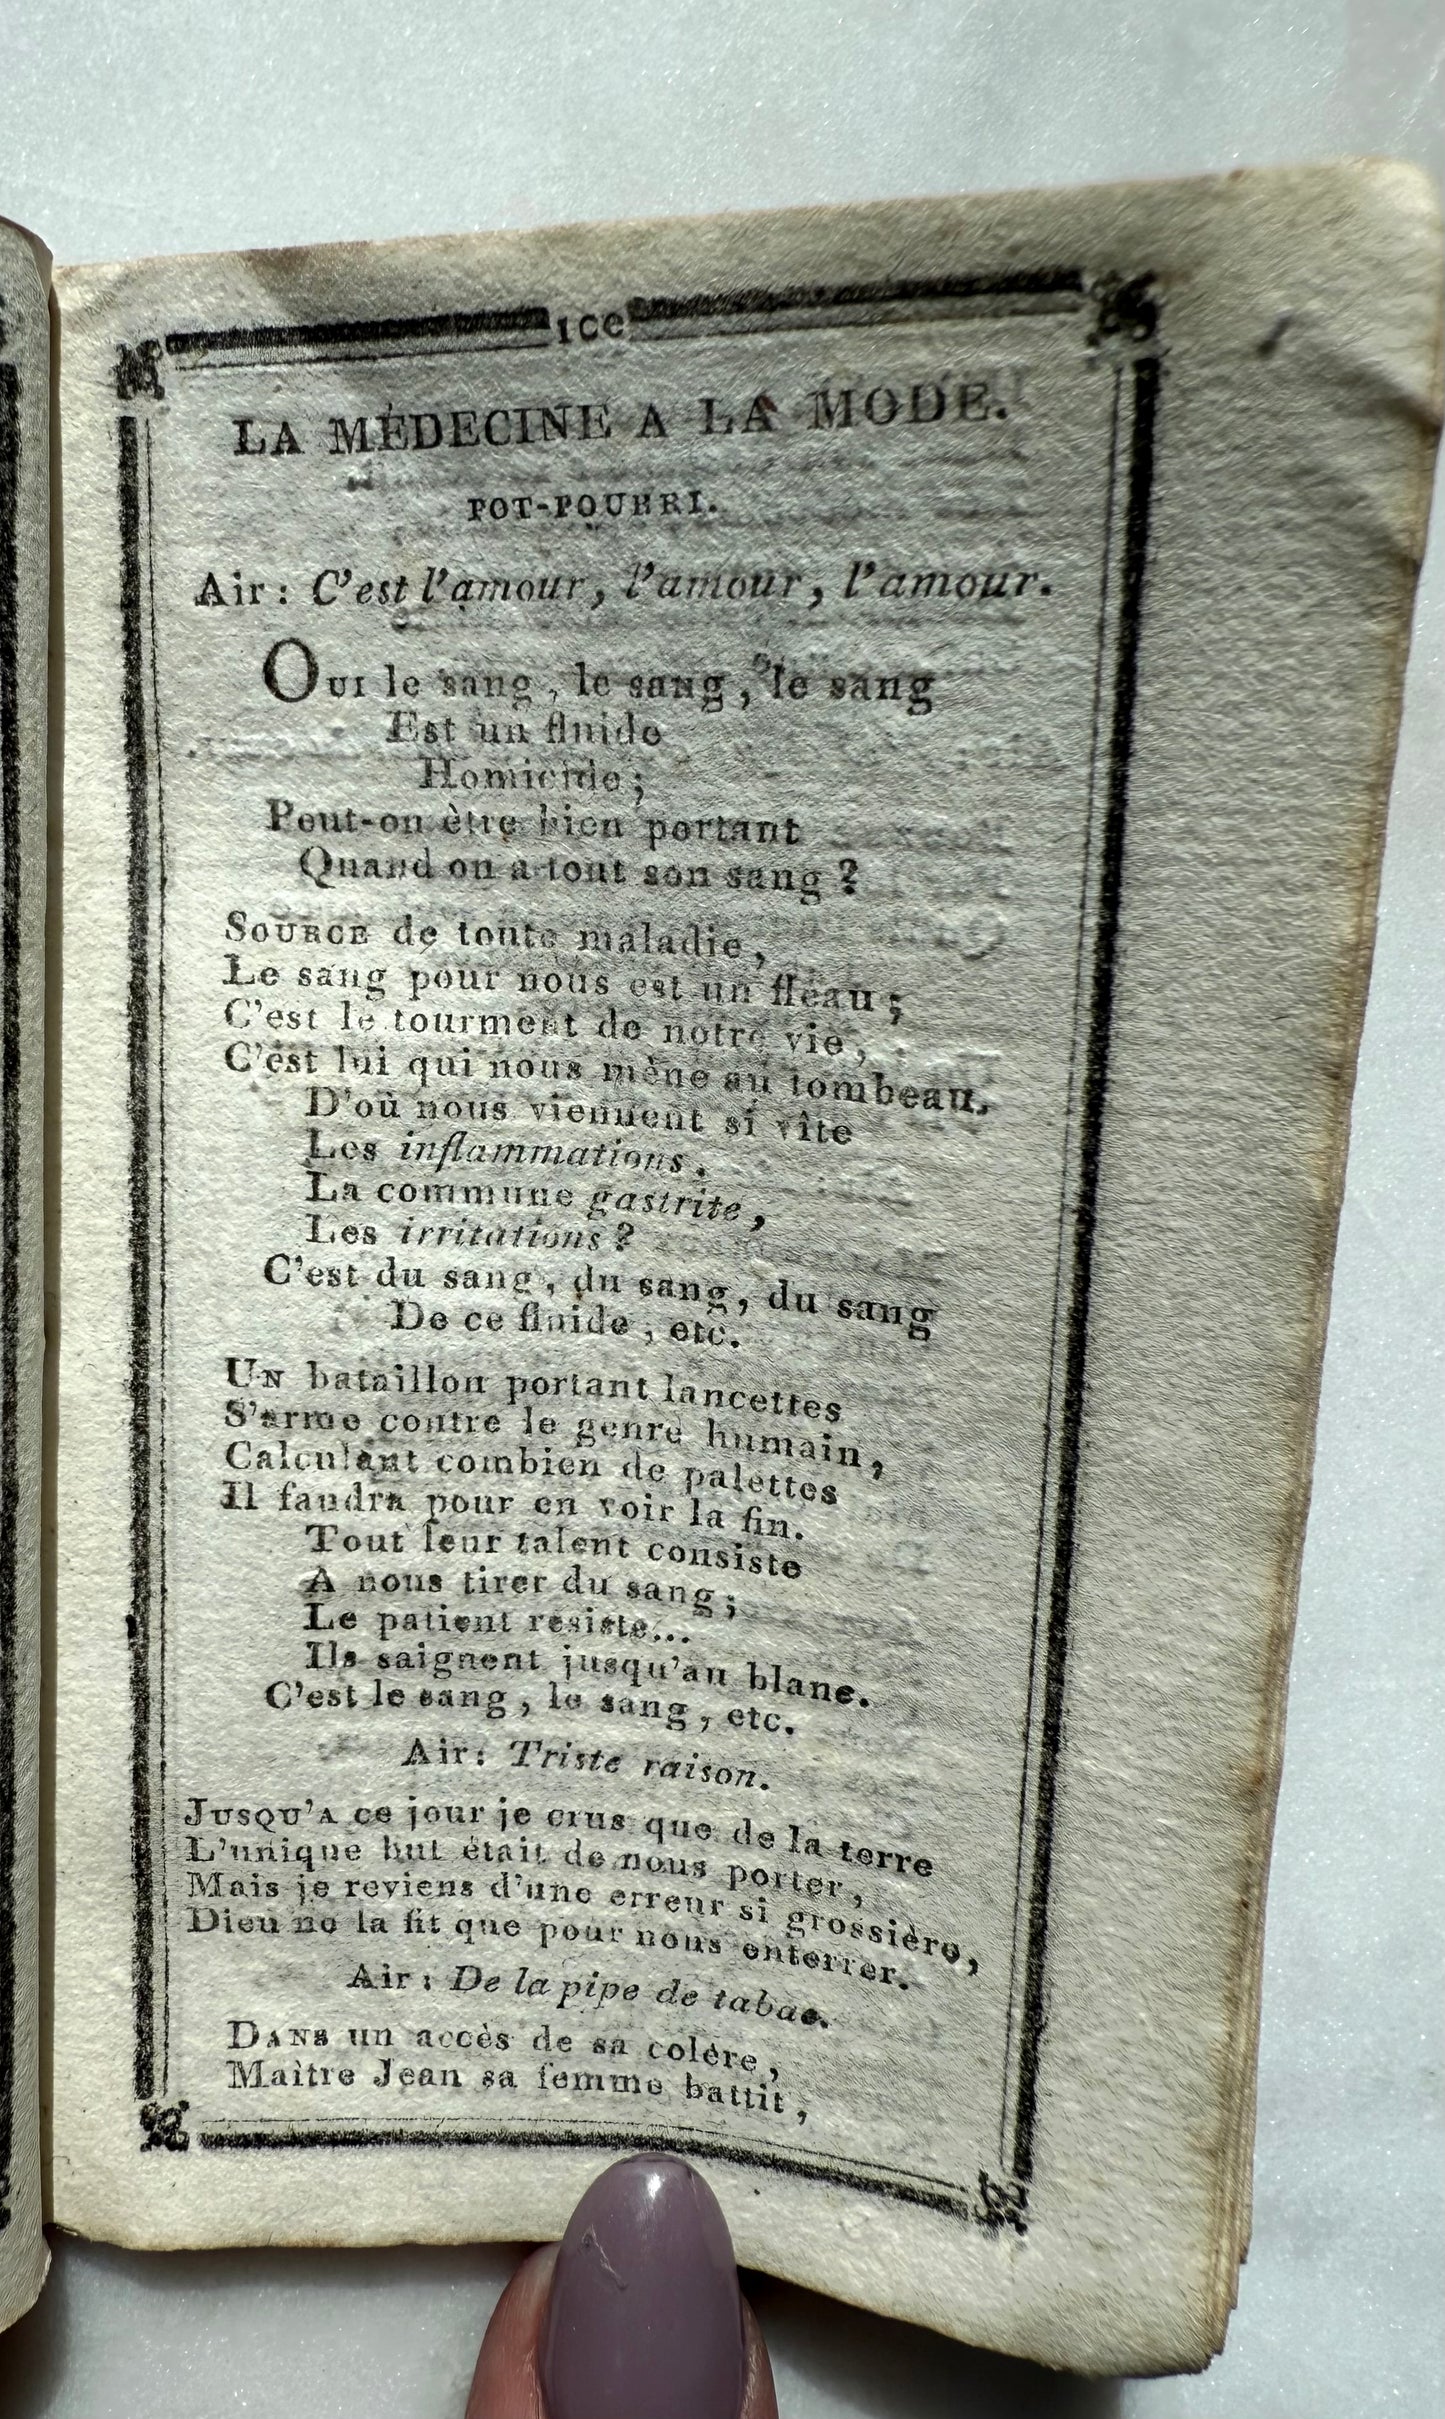 100
LA MÉDECINE A LA MODE.
POT-POURRI.
Air : C'est l'amour, l'amour, l'amour.
Oui le sang, le sang, le sang
Est un fluide
Homicide ;
Peut-on être bien portant
Quand on a tout son sang ?
Source de toute maladie,
Le sang pour nous est un fléau ;
C'est le tourment de notre vie,
C'est lui qui nous mène au tombeau.
D'où nous viennent si vîte
Les inflammations,
La commune gastrite,
Les irritations ?
C'est du sang, du sang, du sang
De ce fluide, etc.
Un bataillon portant lancettes
S'arme contre le genre humain,
Calculant combien de palettes
Il faudra pour en voir la fin.
Tout leur talent consiste
A nous tirer du sang ;
Le patient resiste...
Ils saignent jusqu'au blanc.
C'est le sang, le sang, etc.
Air : Triste raison.
Jusqu'a ce jour je crus que de la terre
L'unique but était de nous porter,
Mais je reviens d'une erreur si grossière,
Dieu ne la fit que pour nous enterrer.
Air : De la pipe de tabac.
Dans un accès de sa colère,
Maître Jean sa femme battit,